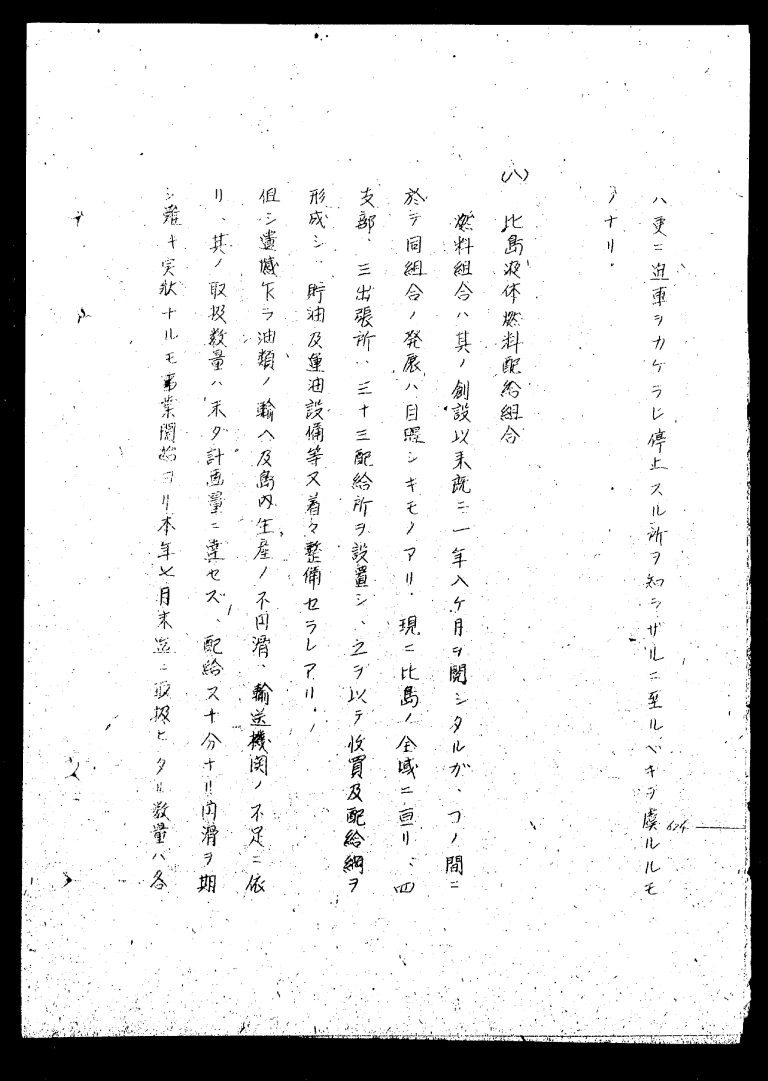 ハ更ニ迫車ヲカケラレ停止スル所ヲ知ラザルニ至ルベキヲ虞ルルモ
ノナリ.
(八) 比島液体燃料配給組合
燃料組合ハ其ノ創設以来既ニ一年八ケ月ヲ閲シタルガ、コノ間ニ
於テ同組合ノ発展ハ目覚シキモノアリ.現ニ比島ノ全域ニ亘リ、四
支部、三出張所、三十三配給所ヲ設置シ、之ヲ以テ收買及配給網ヲ
形成シ、貯油及運油設備等又着々整備セラレアリ.
但シ遺憾乍ラ油類ノ輸入及島内生産ノ不円滑、輸送機関ノ不足ニ依
リ、其ノ取扱数量ハ未ダ計画量ニ達セズ、配給又十分ナリ円滑ヲ期
シ難キ実状ナルモ事業開始ヨリ本年七月末迄ニ取扱ヒタル数量ハ各